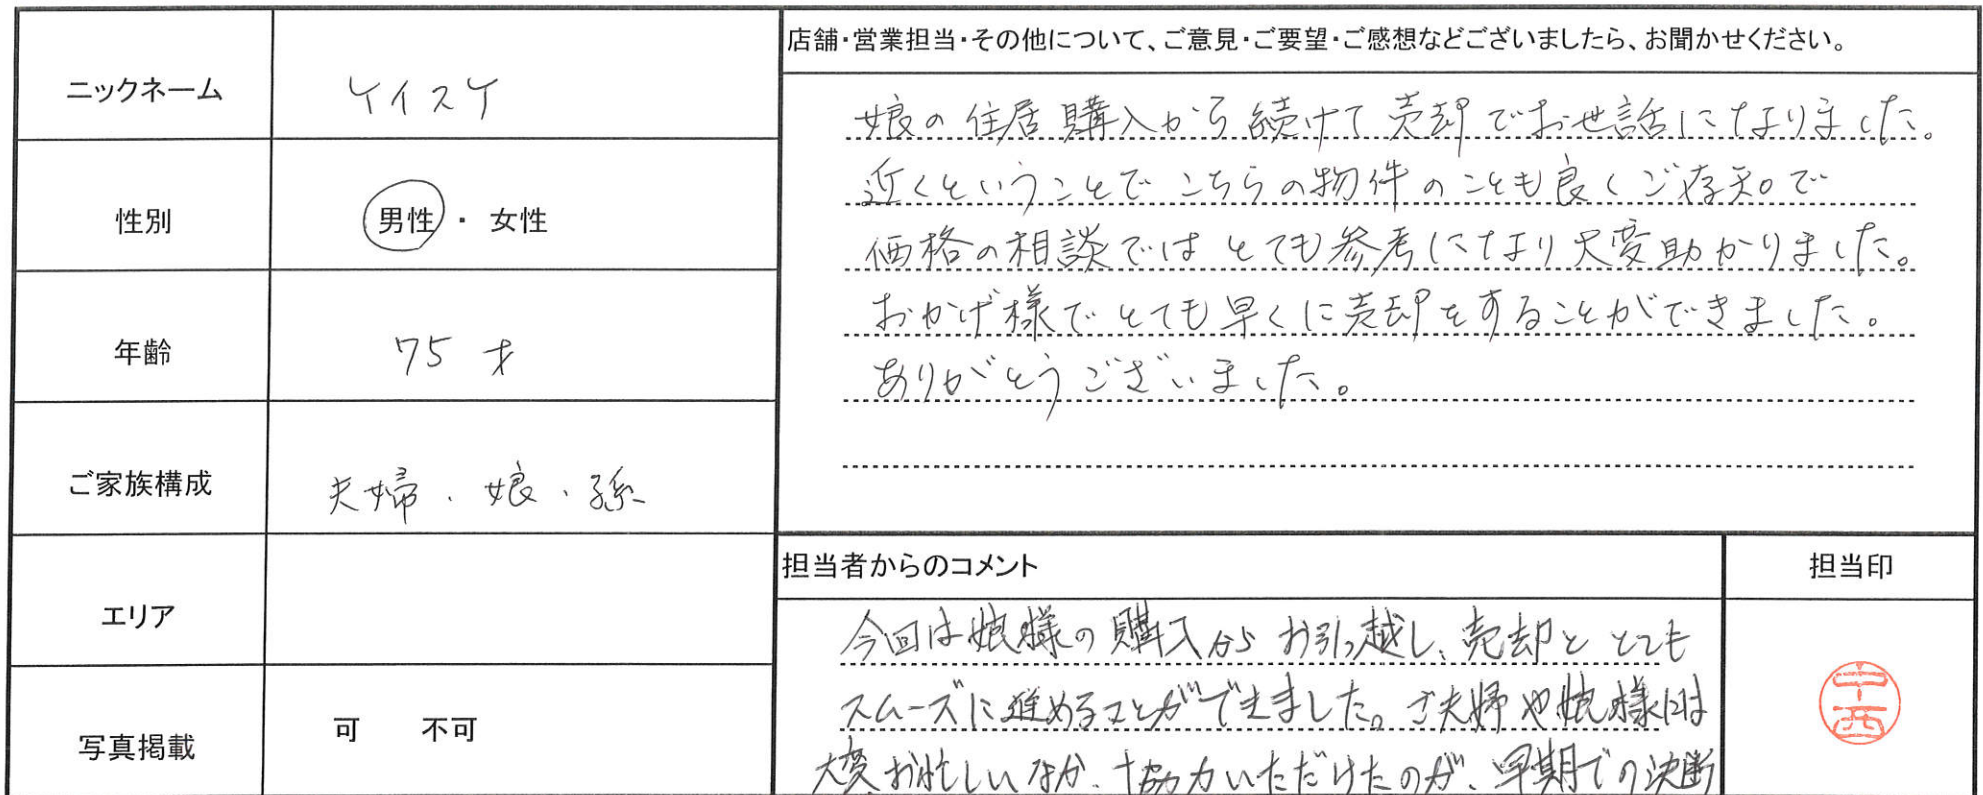 ニックネーム ケイスケ
性別 男性・女性
年齢 75才
ご家族構成 夫婦・娘・孫
エリア
写真掲載 可 不可
店舗・営業担当・その他について、ご意見・ご要望・ご感想などございましたら、お聞かせください。
娘の住居購入から続けて売却でお世話になりました。
近くということでこちらの物件のことも良くご存知で
価格の相談ではとても参考になり大変助かりました。
おかげ様でとても早くに売却をすることができました。
ありがとうございました。
担当者からのコメント
今回は娘様の購入からお引っ越し、売却ととても
スムーズに進めることができました。ご夫婦や娘様には
大変お忙しいなか、協力いただけたのが、早期での決断
担当印
中西